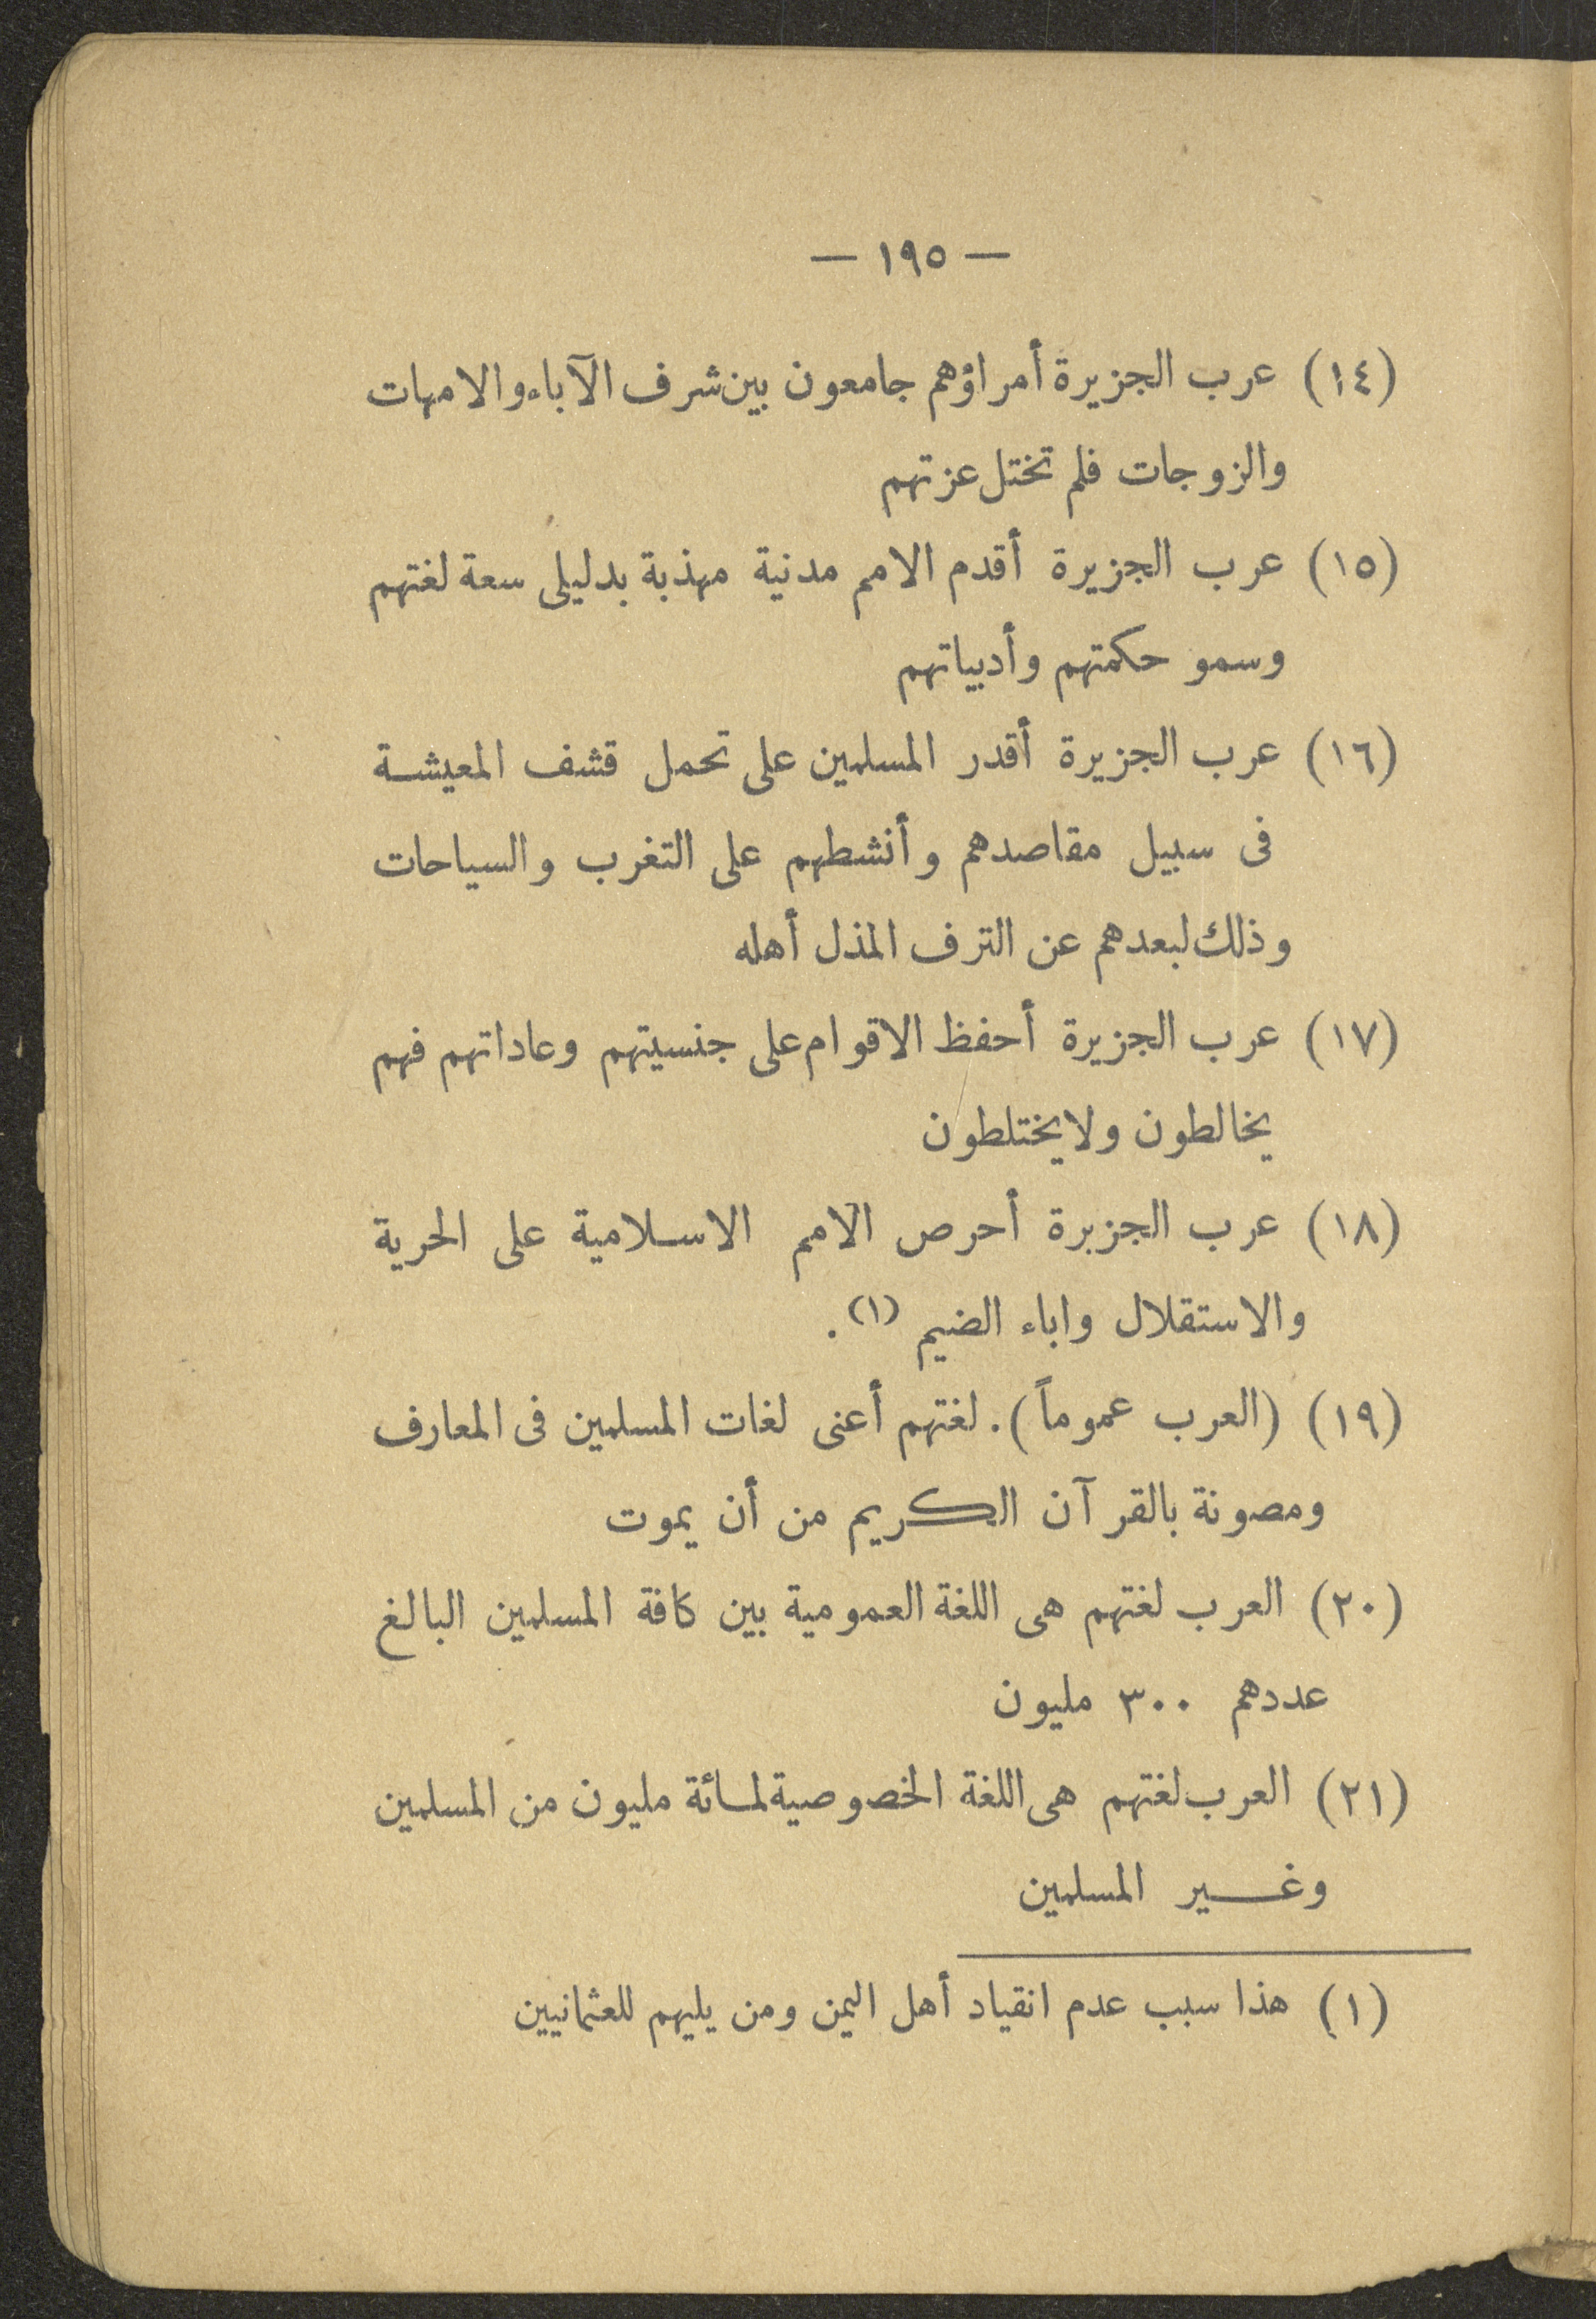 — ١٩٥ —
(١٤) عرب الجزيرة أمراؤهم جامعون بين شرف الآباء والامهات
والزوجات فلم تختل عزتهم
(١٥) عرب الجزيرة أقدم الامم مدنية مهذبة بدليلى سعة لغتهم
وسمو حكمتهم وأدبياتهم
(١٦) عرب الجزيرة أقدر المسلمين على تحمل قشف المعيشة
فى سبيل مقاصدهم وأنشطهم على التغرب والسياحات
وذلك لبعدهم عن الترف المذل أهله
(١٧) عرب الجزيرة أحفظ الاقوام على جنسيتهم وعاداتهم فهم
يخالطون ولا يختلطون
(١٨) عرب الجزيرة أحرص الامم الاسلامية على الحرية
والاستقلال واباء الضيم (١).
(١٩) (العرب عموماً). لغتهم أغنى لغات المسلمين فى المعارف
ومصونة بالقرآن الكريم من أن يموت
(٢٠) العرب لغتهم هى اللغة العمومية بين كافة المسلمين البالغ
عددهم ٣٠٠ مليون
(٢١) العرب لغتهم هى اللغة الخصوصية لمائة مليون من المسلمين
وغير المسلمين
(١) هذا سبب عدم انقياد أهل اليمن ومن يليهم للعثمانيين